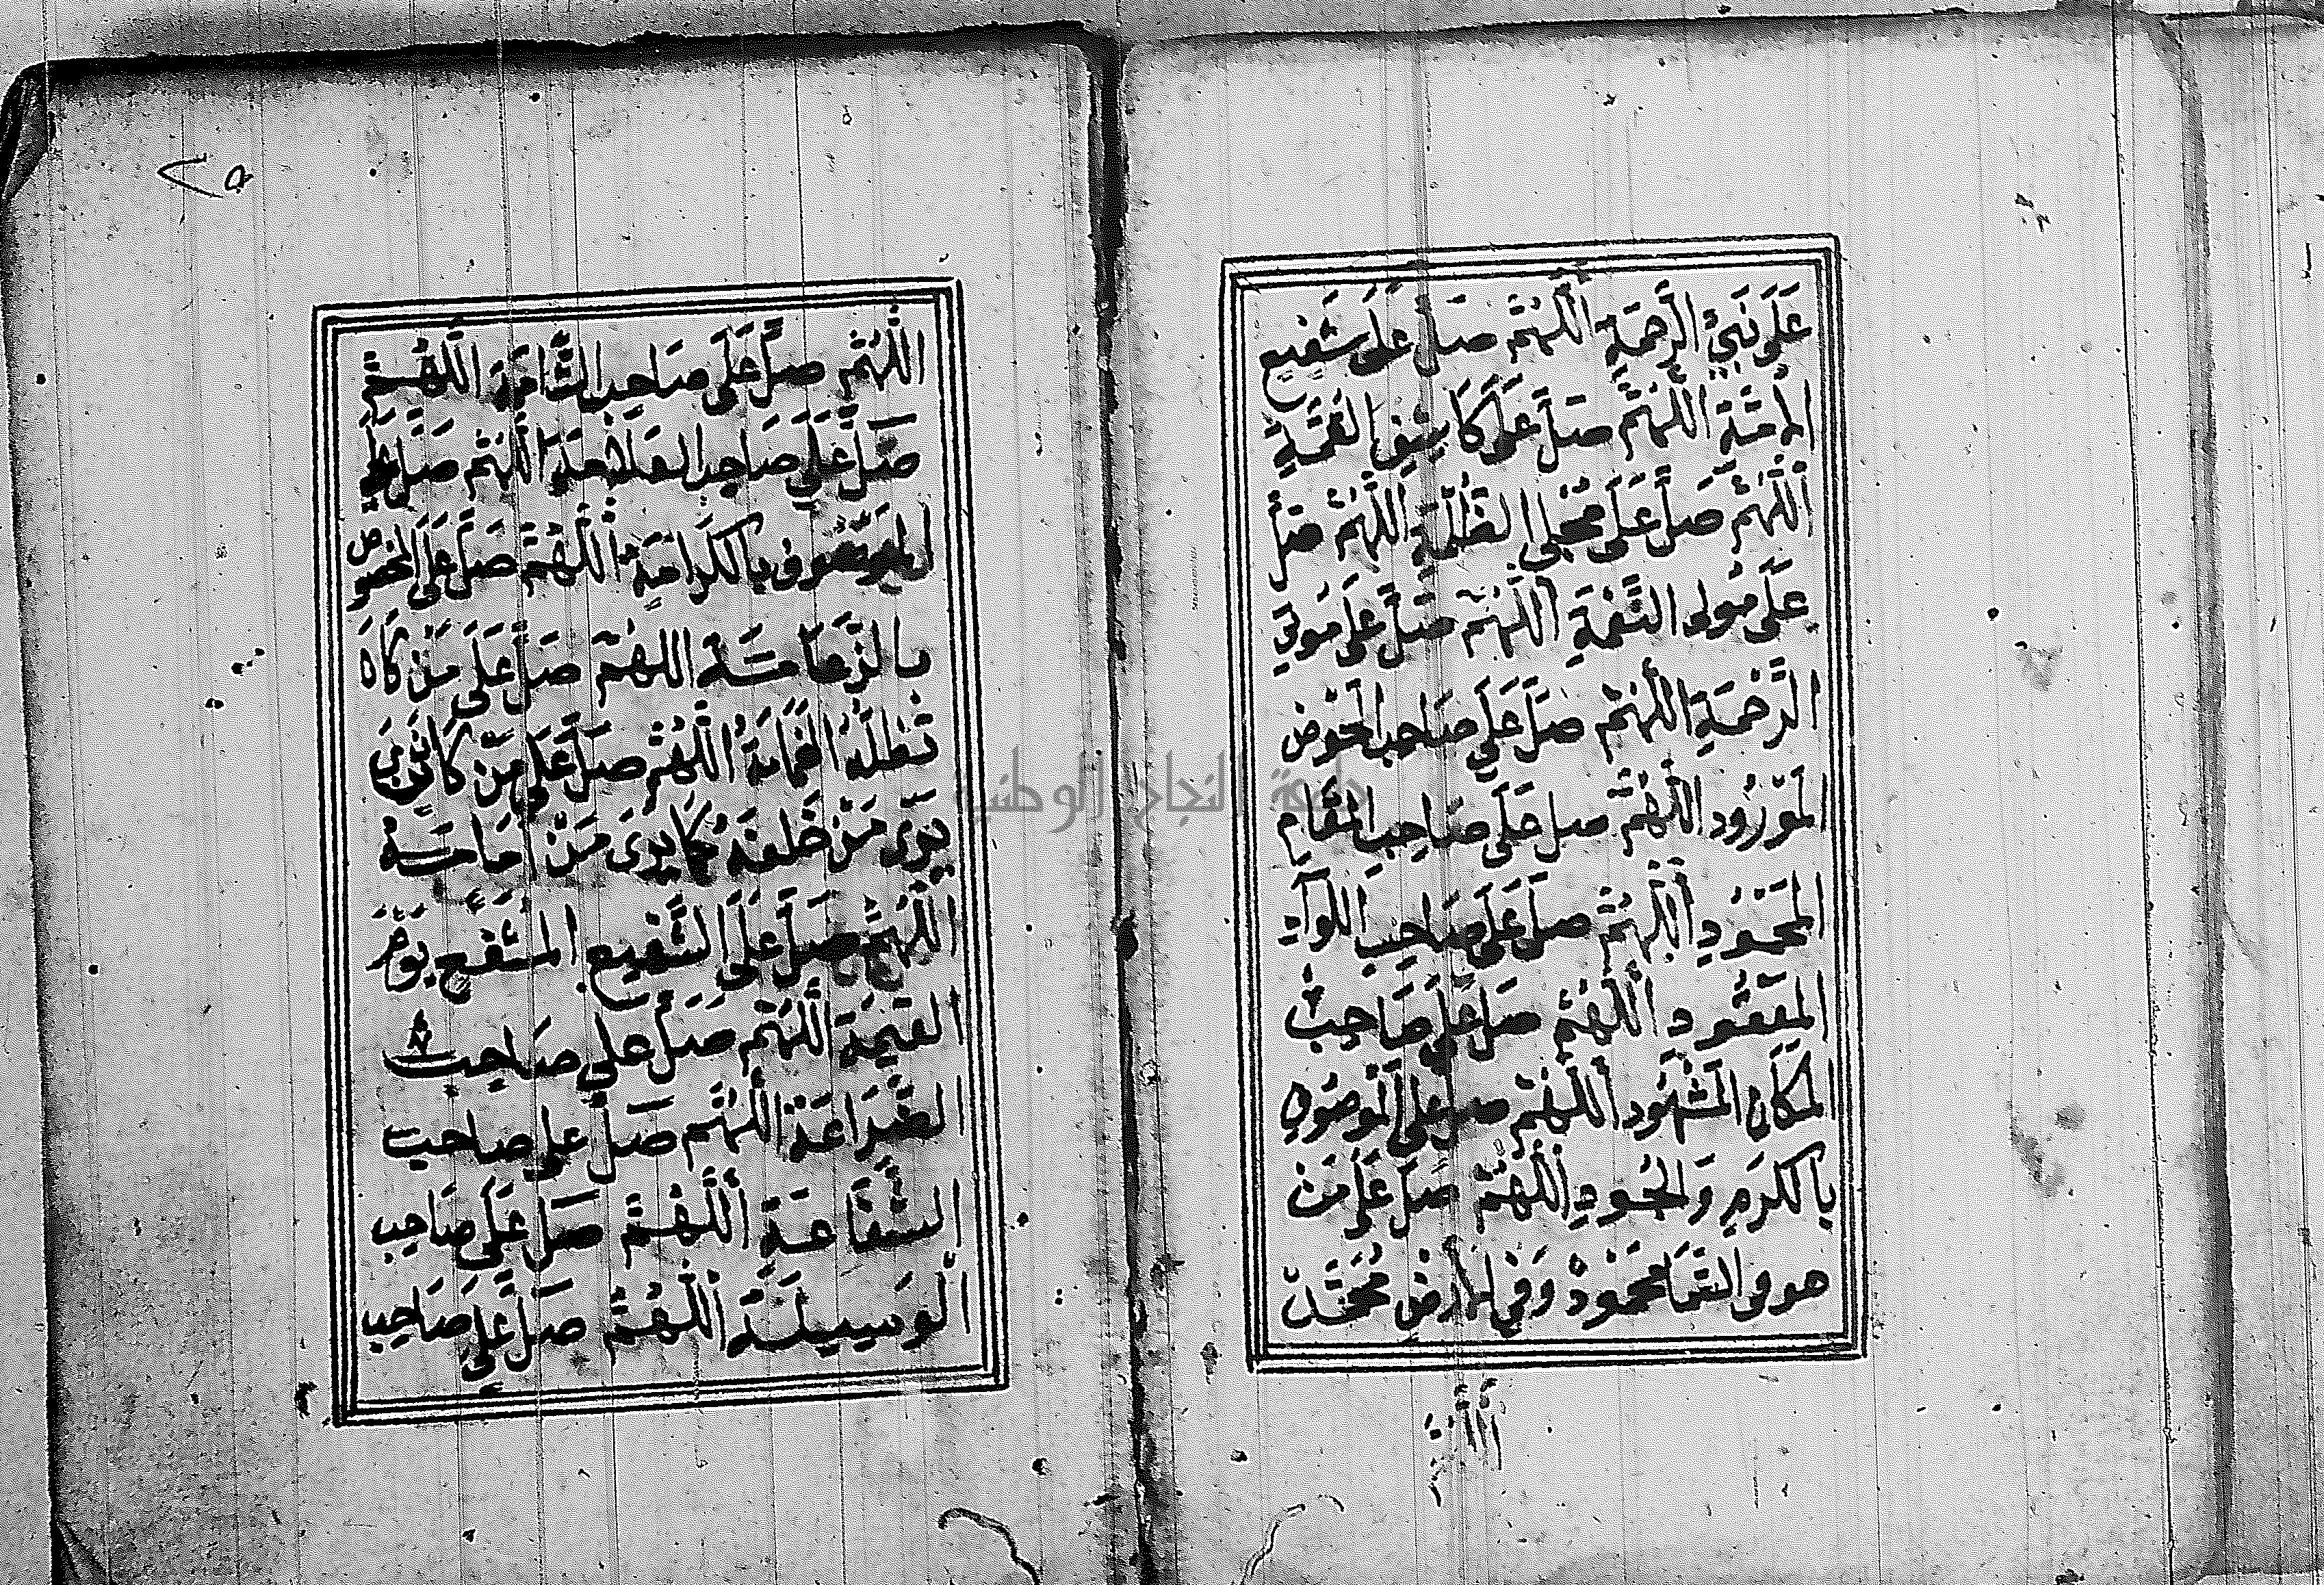 عَلَى نَبِيِّ الرَّحْمَةِ اَللّٰهُمَّ صَلِّ عَلَى شَفِيعِ
الْأُمَّةِ اَللّٰهُمَّ صَلِّ عَلَى كَاشِفِ الغُمَّةِ
اَللّٰهُمَّ صَلِّ عَلَى مُجْلِى الظُّلْمَةِ اَللّٰهُمَّ صَلِّ
عَلَى مُولِى النِّعْمَةِ اَللّٰهُمَّ صَلِّ عَلَى مُوتِي
الرَّحْمَةِ اَللّٰهُمَّ صَلِّ عَلَى صَاحِبِ الْحَوْضِ
الْمَوْرُودِ اللّٰهُمَّ صل عَلَى صَاحِبِ الْمَقَامِ
الْمَحْمُودِ اَللّٰهُمَّ صَلِّ عَلَى صَاحِبِ اللِّوَآءِ
الْمَعْقُودِ اَللّٰهُمَّ صَلِّ عَلَى صَاحِبِ
الْمَكَانِ الْمَشْهُودِ اَللّٰهُمَّ صَلِّ عَلَى الْمَوْصُوفِ
بِالْكَرَمِ وَالْجُودِ اَللّٰهُمَّ صَلِّ عَلَى مَنْ
هو فى السَّمَا مَحْمُودٌ وَفِي الْأَرْضِ مُحَمَّدٌ
٢٥
اَللّٰهُمَّ صَلِّ عَلَى صَاحِبِ الشَّامَةِ اَللّٰهُمَّ
صَلِّ عَلَى صَاحِبِ العَلَامَةِ اَللّٰهُمَّ صَلِّ عَلَى
الْمَوْصُوفِ بِالْكَرَامَةِ اَللّٰهُمَّ صَلِّ عَلَى الْمَخْصُوصِ
بِالزَّعَامَةِ اللّٰهُمَّ صَلِّ عَلَى مَنْ كَانَ
تُظِلُّهُ الْغَمَامَةُ اَللّٰهُمَّ صَلِّ عَلَى مَنْ كَانَ
يَرَى مَنْ خَلْفَهُ كَمَا يَرَى مَنْ أَمَامَهُ
اَللّٰهُمَّ صَلِّ عَلَى الشَّفِيعِ الْمُشَفَّعِ يَوْمَ
القِيٰمَةِ اَللّٰهُمَّ صَلِّ عَلَى صَاحِبِ
الضَّرَاعَةِ اَللّٰهُمَّ صَلِّ عَلَى صَاحِبِ
الشَّفَاعَةِ اَللّٰهُمَّ صَلِّ عَلَى صَاحِبِ
الْوَسِيلَةِ اَللّٰهُمَّ صَلِّ عَلَى صَاحِبِ
جامعة النجاح الوطنية